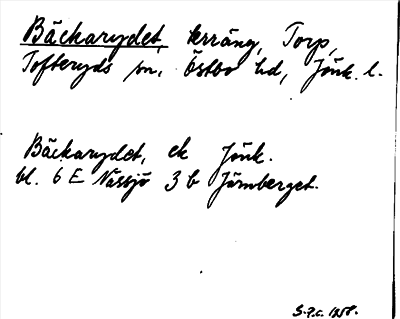 Bäckarydet, terräng, Torp,
Tofteryds sn, Östbo hd, Jönk. l.
Bäckarydet, ek Jönk.
bl. 6 E Nässjö 3 b Järnberget.
S.P.C. 1958.